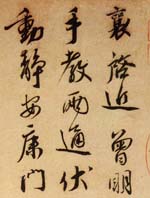 襄啓近曾明
手教兩通伏
動靜安康門